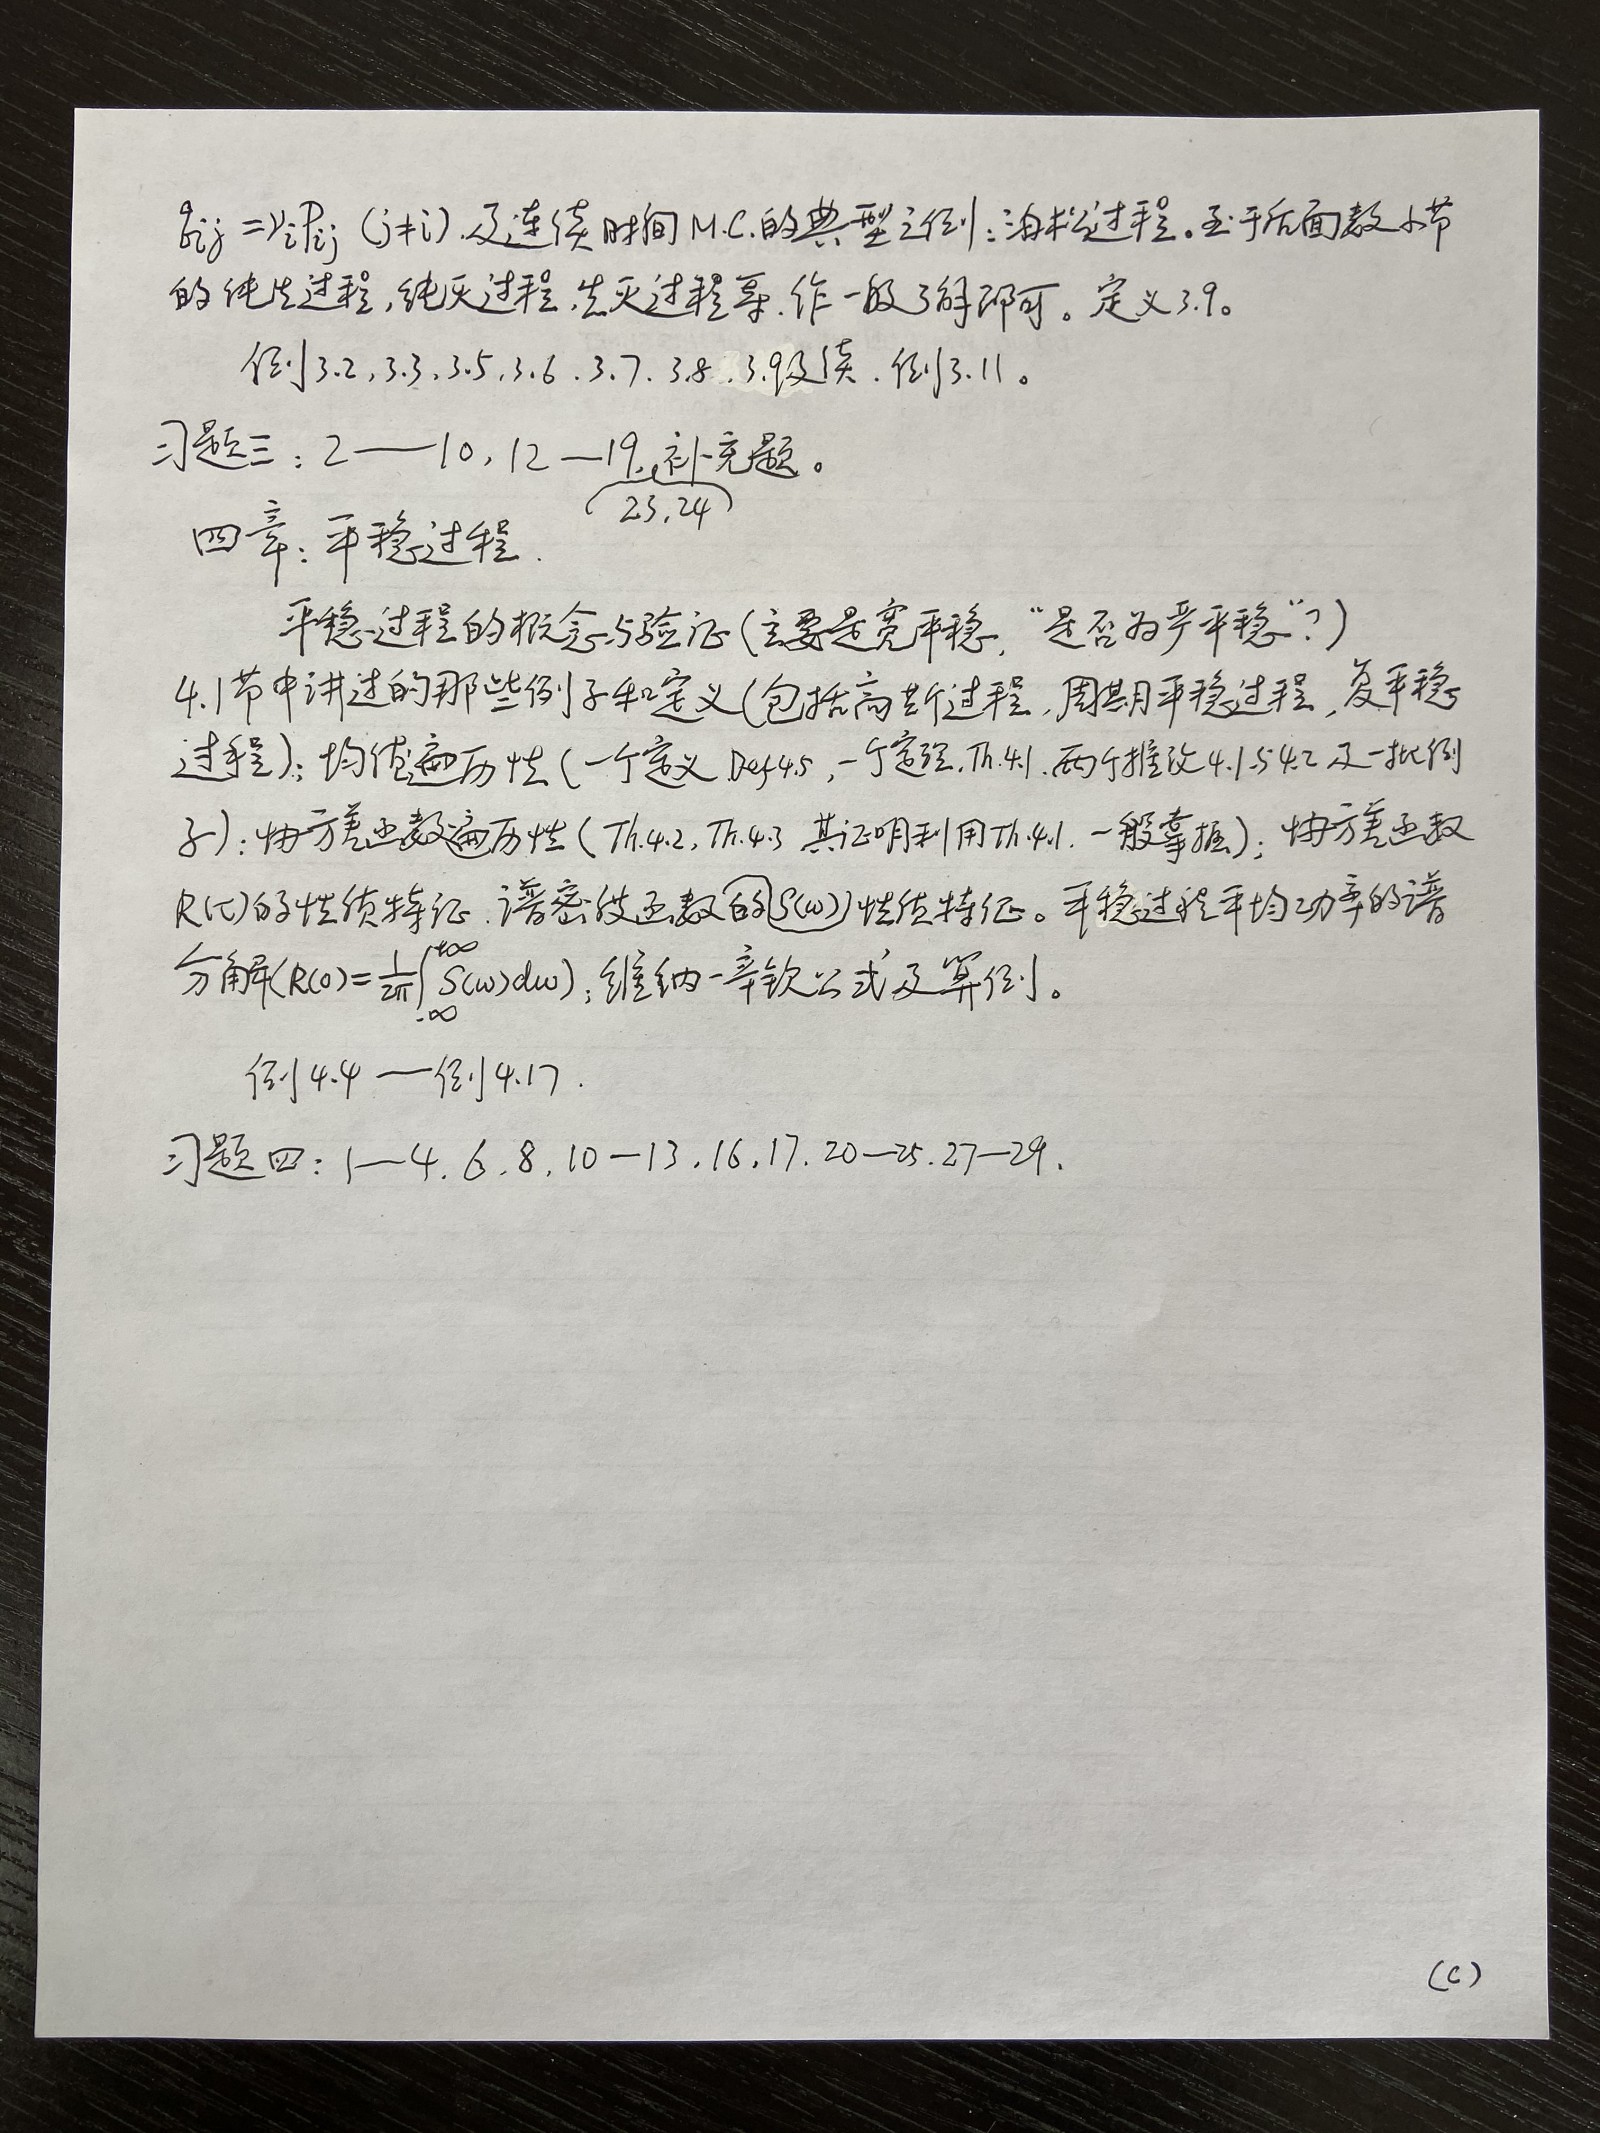 qij = νiPij (j≠i). 及连续时间M.C.的典型之例：泊松过程。至于后面数小节
的纯生过程, 纯灭过程, 生灭过程等. 作一般了解即可。定义3.9。
例3.2, 3.3, 3.5, 3.6. 3.7. 3.8. 3.9及续. 例3.11。
习题三：2——10, 12—19, 补充题。
(23, 24)
四章：平稳过程.
平稳过程的概念与验证(主要是宽平稳, “是否为严平稳”?)
4.1节中讲过的那些例子和定义(包括高斯过程, 周期平稳过程, 复平稳
过程); 均值遍历性(一个定义Def4.5, 一个定理.Th.4.1. 两个推论4.1与4.2及一批例
子); 协方差函数遍历性(Th.4.2, Th.4.3 其证明利用Th.4.1. 一般掌握); 协方差函数
R(τ)的性质特征. 谱密度函数的S(ω)性质特征。平稳过程平均功率的谱
分解(R(0)=1/2π∫-∞+∞S(ω)dω); 维纳—辛钦公式及算例。
例4.4——例4.17.
习题四：1—4. 6. 8. 10—13. 16. 17. 20—25. 27—29.
(C)